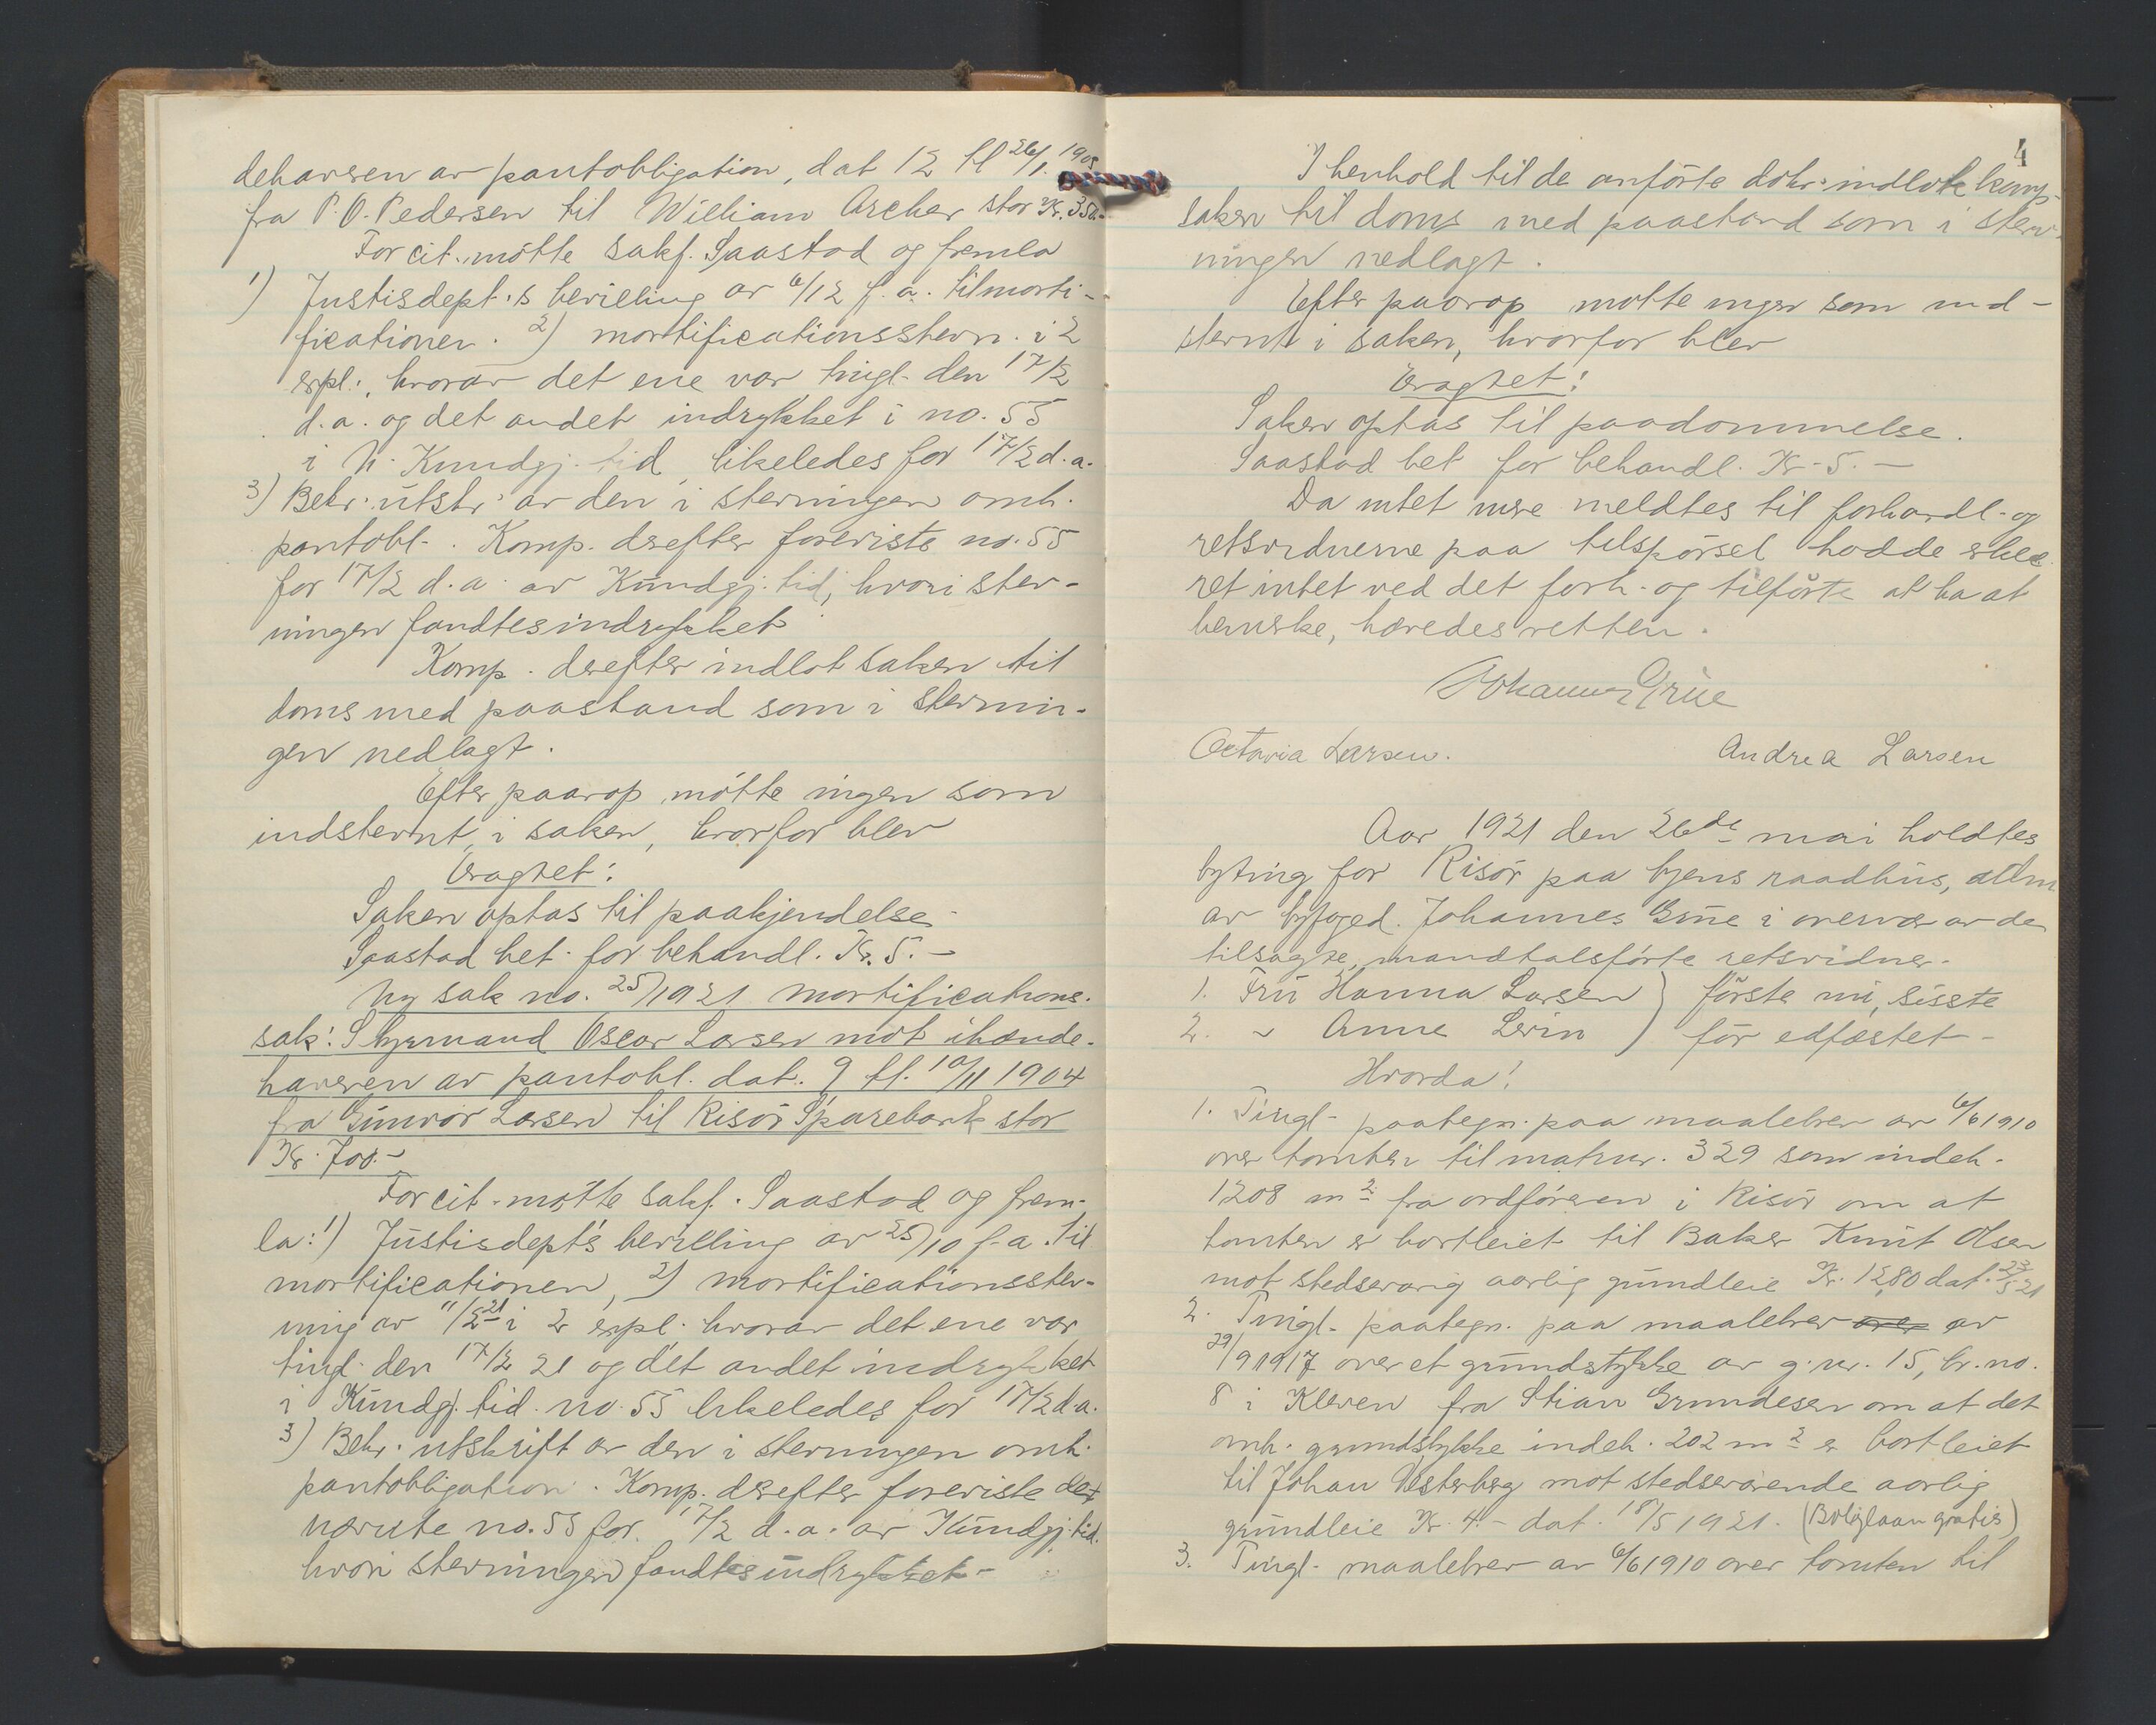 dehaveren av pantobligation, dat 12 tl 26/1. 1905
fra P. O. Pedersen til William Archer stor Kr. 350.-
For cit. mötte sakf. Saastad og fremla
1) Justisdept.s bevilling av 6/12 f. a. til morti-
ficationen. 2) mortificationsstevn. i 2
expl., hvorav det ene var tingl. den 17/2
d. a. og det andet indrykket i no. 55
i N. Kundgj. tid likeledes for 17/2 d. a.
3) Bekr. utskr. av den i stevningen omh.
pantobl. . Komp. derefter foreviste no. 55
for 17/2 d. a. av Kundgj. tid, hvori stev-
ningen fandtes indrykket
Komp. derefter indlot saken til
doms med paastand som i stevnin-
gen nedlagt.
Efter paarop mötte ingen som
indstevnt i saken, hvorfor blev
Eragtet:
Saken optas til paakjendelse
Saastad bet. for behandl. Kr. 5. -
Ny sak no. 25/1921 mortifications-
sak: Styrmand Oscar Larsen mot ihænde-
haveren av pantobl. dat. 9 tl. 10/11 1904
fra Gunvor Larsen til Risör Sparebank stor
Kr. 700.-
For cit. mötte sakf. Saastad og frem-
la: 1) Justisdepts bevilling av 25/10 f. a. til
mortificationen, 2) mortificationsstev-
ning av 11/2 21 i 2 expl. hvorav det ene var
tingl. den 17/2 21 og det andet indrykket
i Kundgj. tid. no. 55 likeledes for 17/2 d. a.
3) Bekr. utskrift av den i stevningen omh.
pantobligation. Komp. derefter foreviste det
nævnte no. 55 for 17/2 d. a. av Kundgj. tid.
hvori stevningen fandtes indrykket -
4
I henhold til de anförte dokr. indlot komp.
saken til doms med paastand som i stev-
ningen nedlagt.
Efter paarop mötte ingen som ind-
stevnt i saken, hvorfor blev
Eragtet:
Saken optas til paadömmelse.
Saastad bet for behandl. Kr. 5. -
Da intet mere meldtes til forhandl. og
retsvidnerne paa tilspörsel hadde erklæ-
ret intet ved det forh. og tilförte at ha at
bemerke, hævedes retten.
Johannes Grüe
Octavia Larsen.
Andrea Larsen
Aar 1921 den 26de mai holdtes
byting for Risör paa byens raadhus, adm
av byfoged Johannes Grüe i overvær av de
tilsagte, mandtalsförte retsvidner.
1. Fru Hanna Larsen } förste nu, sisste
2. " Anne Levin } för edfæstet -
Hvorda!
1. Tingl. paategn. paa maalebrev av 6/6 1910
over tomten til matrnr. 329 som indeh.
1208 m2 fra ordföreren i Risör om at
tomten er bortleiet til Baker Knut Olsen
mot stedsevarig aarlig grundleie Kr. 12,80 dat. 23/5 21
2. Tingl. paategn. paa maalebrev over av
29/9 1917 over et grundstykke av g. nr. 15, br. no.
8 i Kleven fra Stian Grundesen om at det
omh. grundstykke indeh. 202 m2 er bortleiet
til Johan Vesterberg mot stedsevarende aarlig
grundleie Kr. 4. - dat. 18/5 1921. (Boliglaan gratis)
3. Tingl. maalebrev av 6/6 1910 over tomten til